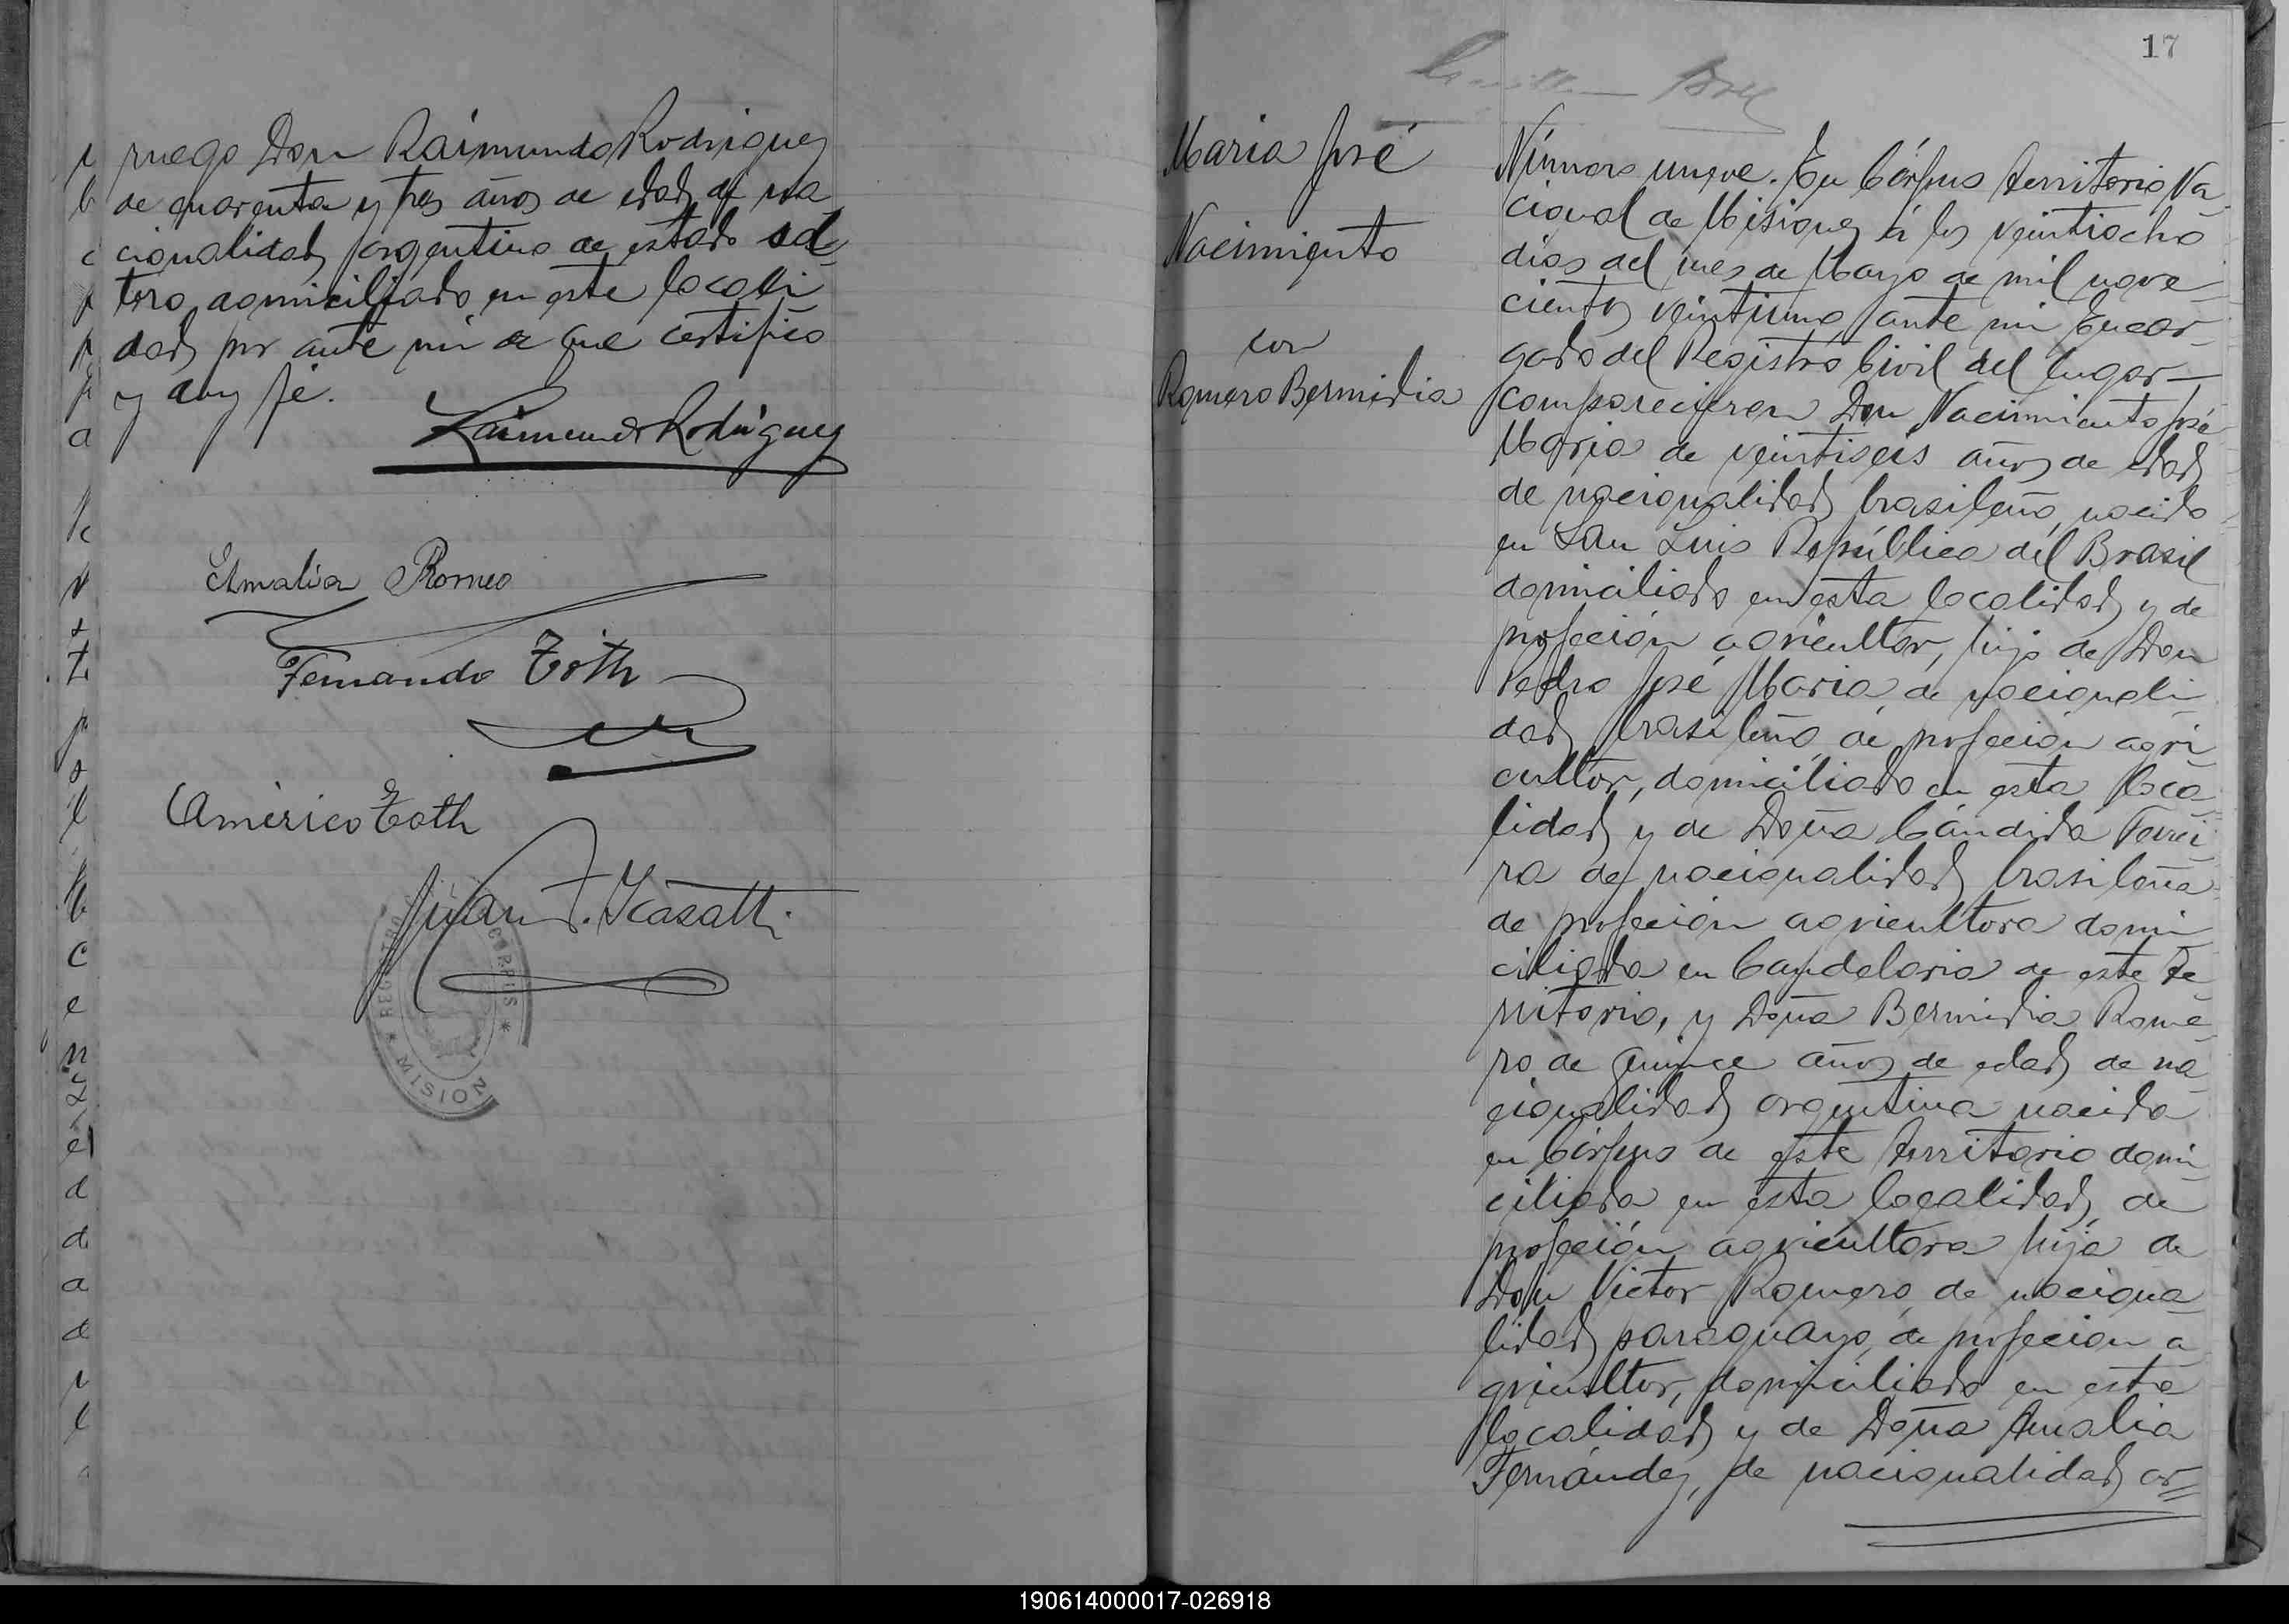 ruego Don Raimundo Rodriguez
de cuarenta y tres años de edad de na
cionalidad argentino de estado sol
tero, domiciliado en esta locali
dad por ante mi de que certifico
y doy fé.
Raimundo Rodriguez
Amalia Romeo
Fernando Toth
Américo Toth
Juan F.
REGISTRO CORPUS * MISION
17
Maria José
Nacimiento
con
Romero Bermidia
Número nueve. En Córpus territorio Na
cional de Misiones á los veintiocho
dias del mes de Mayo de mil nove-
cientos veintiuno, ante mi Encar-
gado del Registro Civil del lugar—
comparecieron Don Nacimiento José
Maria de veintiseis años de edad
de nacionalidad brasileño, nacido
en San Luis República del Brasil
domiciliado en esta localidad y de
profeción agricultor, hijo de Don
Pedro José Maria de nacionali
dad brasileño de profeción agri
cultor, domiciliado en esta loca
lidad y de Doña Cándida Ferrei
ra de nacionalidad brasileña
de profeción agricultora domi
ciliada en Candelaria de este Te
rritorio, y Doña Bermidia Rome
ro de quince años de edad de na
cionalidad argentina nacida
en Córpus de este territorio domi
ciliada en esta localidad, de
profeción agricultora hija de
Don Victor Romero, de naciona
lidad paraguayo, de profecion a
gricultor, domiciliado en esta
localidad y de Doña Amalia
Fernández, de nacionalidad ar=
190614000017-026918